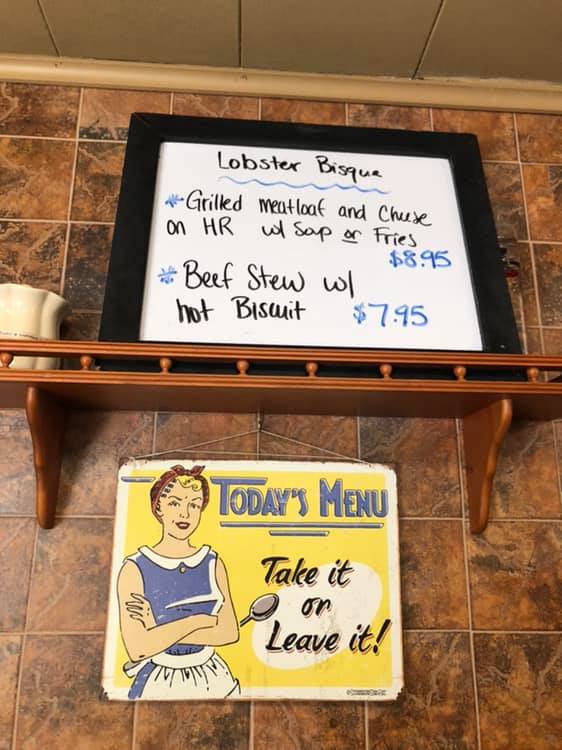 Lobster Bisque
*Grilled meatloaf and Chuse
on HR w/ Soup or Fries
$8.95
* Beef Stew w/
hot Biscuit $7.95
TODAY'S MENU
Take it
or
Leave it!